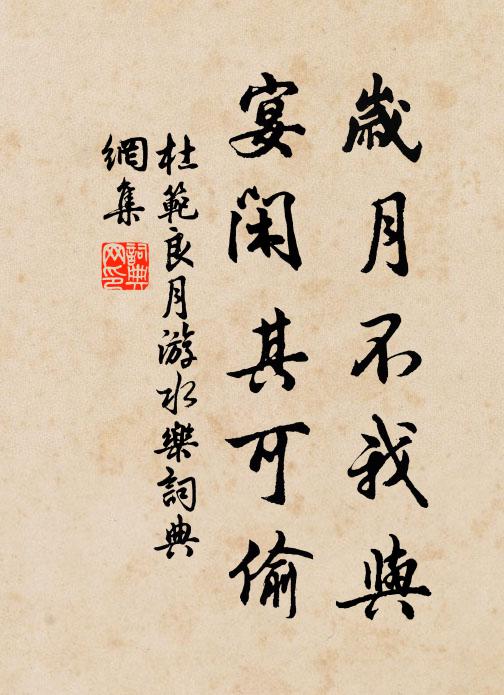 歲月不我與
宴閑其可偷
杜範良月游水樂詞典
網集
詞典网印